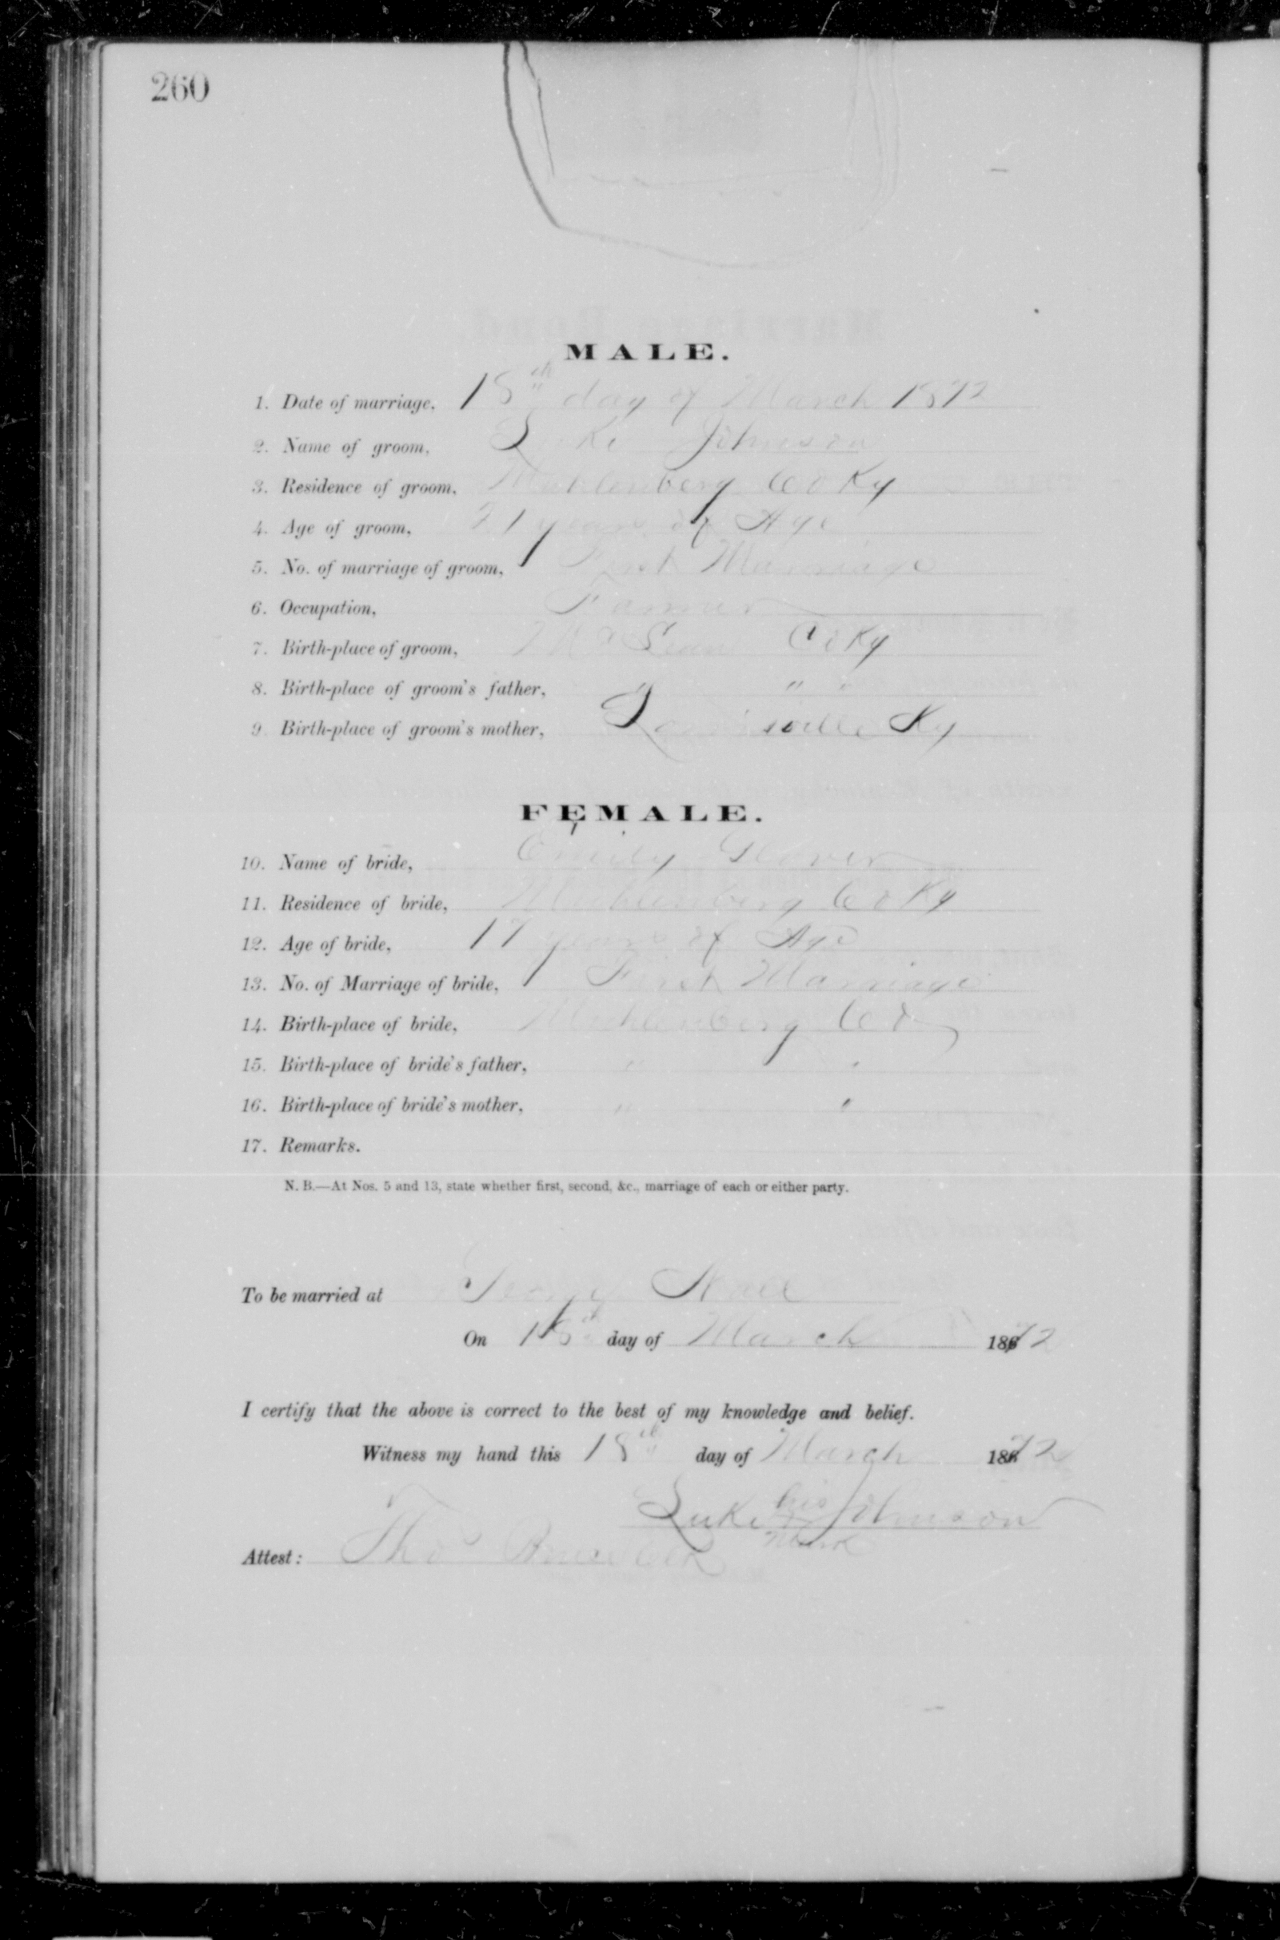 260
MALE.
1. Date of marriage, 18th day of March 1872
2. Name of groom, Luke Johnson
3. Residence of groom, Muhlenberg Co Ky
4. Age of groom, 21 years of Age
5. No. of marriage of groom, First Marriage
6. Occupation, Farmer
7. Birth-place of groom, McLean Co Ky
8. Birth-place of groom's father, " " "
9. Birth-place of groom's mother, Louisville Ky
FEMALE.
10. Name of bride, Emily Glover
11. Residence of bride, Muhlenberg Co Ky
12. Age of bride, 17 years of Age
13. No. of Marriage of bride, First Marriage
14. Birth-place of bride, Muhlenberg Co
15. Birth-place of bride's father, " "
16. Birth-place of bride's mother, " "
17. Remarks.
N. B.—At Nos. 5 and 13, state whether first, second, &c., marriage of each or either party.
To be married at
On 18th day of March 1872
I certify that the above is correct to the best of my knowledge and belief.
Witness my hand this 18th day of March 1872
Luke his Johnson
mark
Attest: Thos Bruce Clk